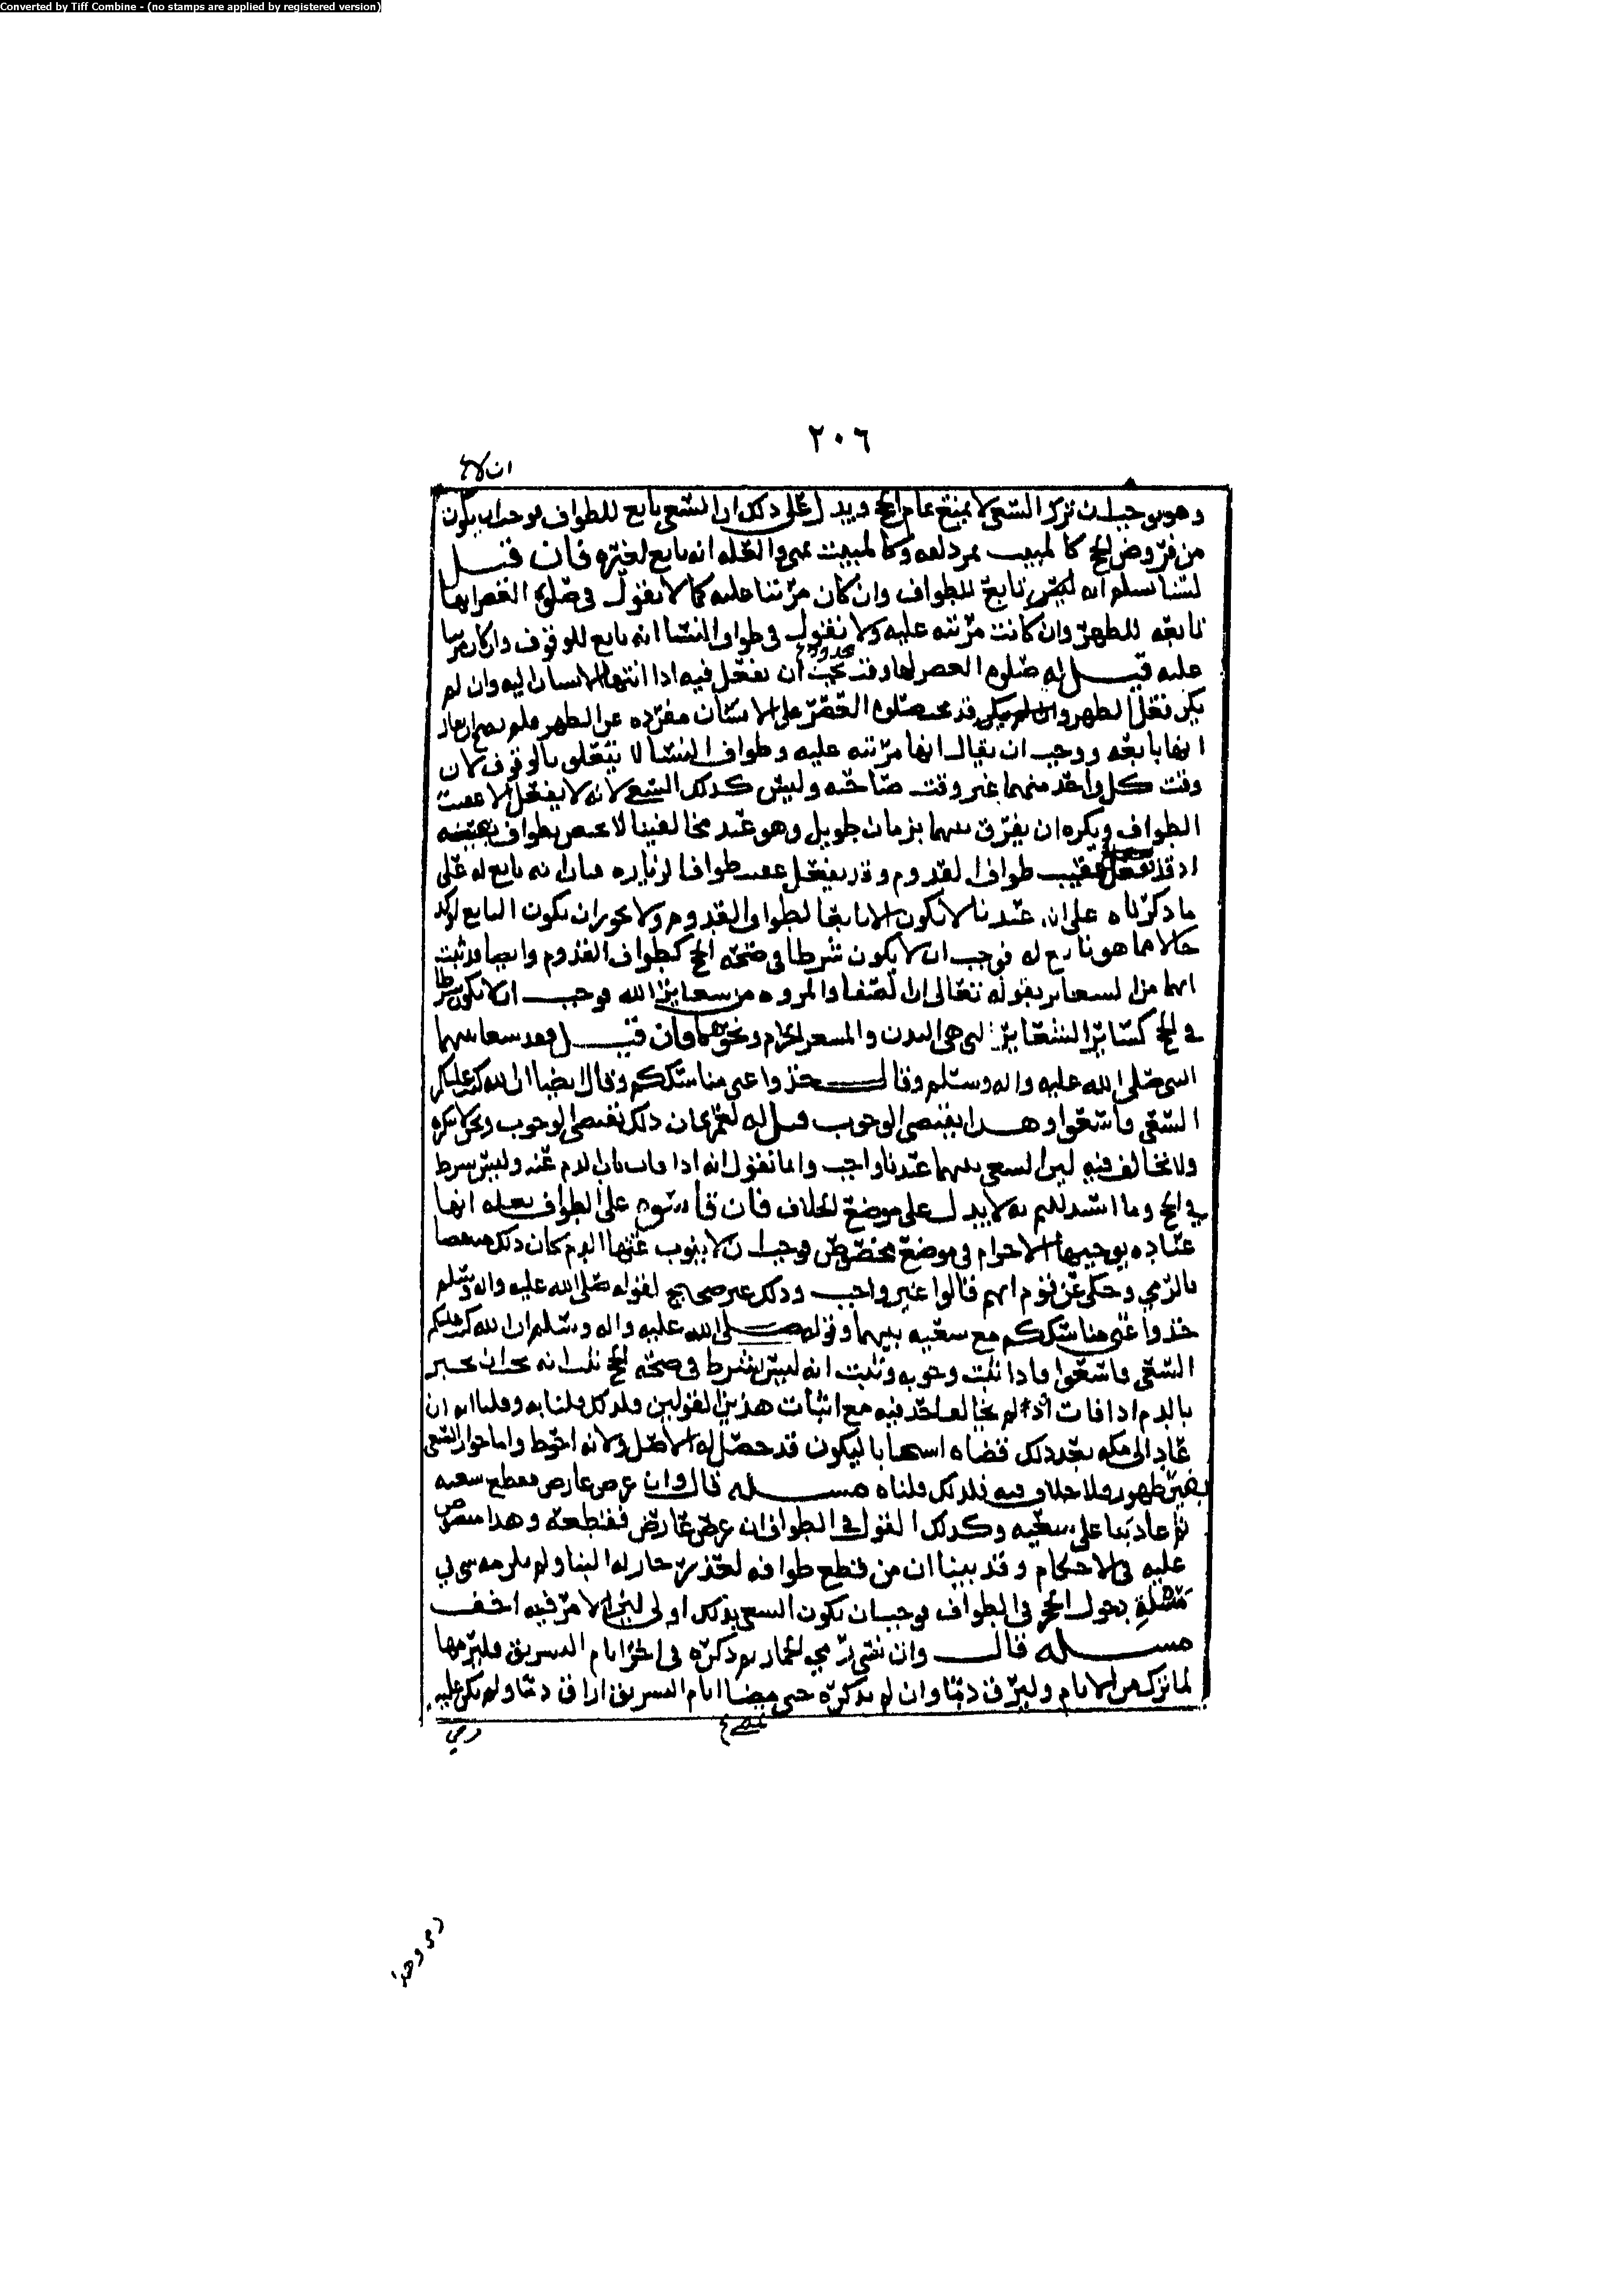 Converted by Tiff Combine - (no stamps are applied by registered version)
٢٠٦
ان لا
وهو يوجب ان ترك السعي لا يمنع تمام الحج ويدل على ذلك ان السعي تابع للطواف فوجب ان يكون
من فروض الحج كالمبيت بمزدلفه وكالمبيت بمنى والعله انه تابع لغيره فان قيل
لسنا نسلم انه ليس تابع للطواف وان كان مرتبا عليه كما لا نقول في صلوه العصر انها
تابعه للظهر وان كانت مرتبه عليه ولا نقول في طواف النسا انه تابع للوقوف وان كان مرتبا
عليه قيل له صلوه العصر لها وقت يجب ان تفعل فيه اذا انتها الانسان اليه وان لم
يكن فعل الظهر وان لم يكن قد تجب صلوه العصر على الانسان مفرده عن الظهر فلم يصح ان يقال
انها تابعه ووجب ان يقال انها مرتبه عليه وطواف النسا لا يتعلق بالوقوف لان
وقت كل واحد منهما غير وقت صاحبه وليس كذلك السعي لانه لا يفعل الا عقيب
الطواف ويكره ان يفرق بينهما بزمان طويل وهو عند مخالفينا لا يختص بطواف بعينه
اذ قد يفعل عقيب طواف القدوم وقد يفعل عقيب طواف الزياره فبان انه تابع له على
ما ذكرناه على ان عندنا لا يكون الا تابعا لطواف القدوم ولا يجوز ان يكون التابع اوكد
حالا مما هو تابع له فوجب ان لا يكون شرطا في صحه الحج كطواف القدوم وايضا قد ثبت
انهما من الشعاير بقوله تعالى ان الصفا والمروه من شعاير الله فوجب ان لا يكون شرطا
في الحج كساير الشعاير التي هي البدن والمشعر الحرام ونحوهما فان قيل فقد سعا بينهما
النبي صلى الله عليه واله وسلم وقال خذوا عني مناسككم وقال ايضا ان الله كتب عليكم
السعي فاسعوا وهذا يقتضي الوجوب قيل له نعم فان ذلك يقتضي الوجوب ونحن لا ننكره
ولا نخالف فيه لان السعي بينهما عندنا واجب وانما نقول انه اذا فات ناب الدم عنه وليس بشرط
في الحج وما استدللتم به لا يدل على موضع الخلاف فان قاسوه على الطواف بعله انها
عباده يوجبها الاحرام في موضع مخصوص فوجب ان لا ينوب عنها الدم كان ذلك منتقضا
بالرمي وحكي عن قوم انهم قالوا غير واجب وذلك غير صحيح لقوله صلى الله عليه واله وسلم
خذوا عني مناسككم مع سعيه بينهما وقوله صلى الله عليه واله وسلم ان الله كتب عليكم
السعي فاسعوا فاذا ثبت وجوبه وثبت انه ليس بشرط في صحه الحج ثبت انه يجب ان يجبر
بالدم اذا فات اذ لم يخالف احد فيه مع اثبات هذين القولين فلذلك قلنا به وقلنا انه ان
عاد الى مكه بعد ذلك قضاه استحبابا ليكون قد حصل له الاصل ولانه احوط واما جواز السعي
بغير طهور فلا خلاف فيه فلذلك قلناه مسله قال وان عرض عارض فقطع سعيه
ثم عاد بنا على سعيه وكذلك القول في الطواف ان عرض عارض فقطعه وهذا منصوص
عليه في الاحكام وقد بينا ان من قطع طوافه لعذر جاز له البنا
مسله دخول الحجر في الطواف فوجب ان يكون السعي بذلك اولى لان الامر فيه اخف
مسله قال وان نسي رمي الجمار ثم ذكره في اخر ايام التشريق فليرمها
لما ترك من الايام وليرق دما وان لم يذكره حتى مضا ايام التشريق اراق دما ولم يكن عليه
رمي